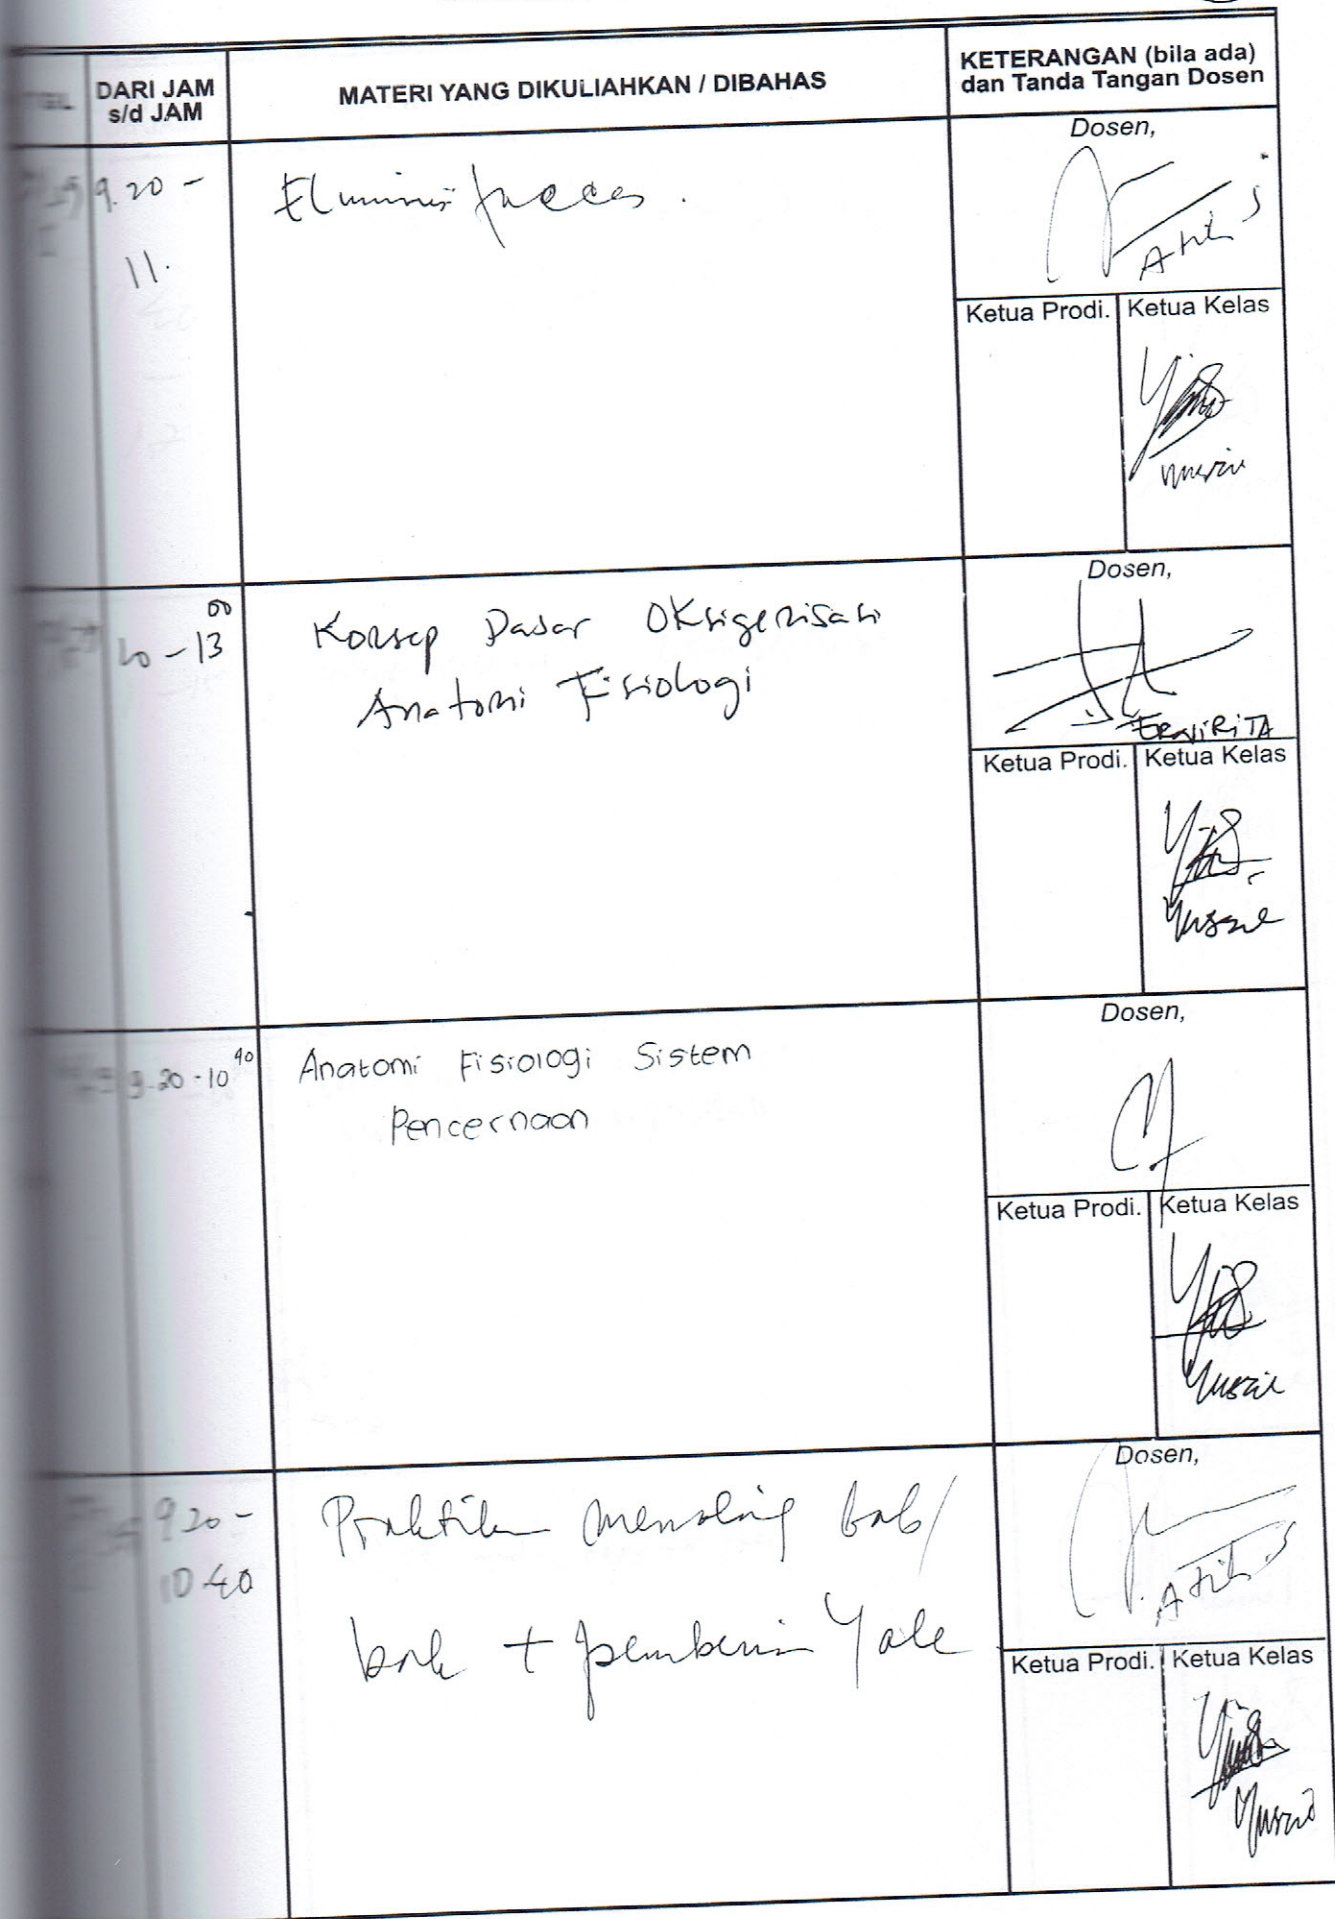 TGL.
DARI JAM
s/d JAM
MATERI YANG DIKULIAHKAN / DIBAHAS
KETERANGAN (bila ada)
dan Tanda Tangan Dosen
9.20 -
11.
Eliminasi faeces.
Dosen,
Ketua Prodi.
Ketua Kelas
10 - 13 00
Konsep Dasar Oksigenisasi
Anatomi Fisiologi
Dosen,
ERAVIRITA
Ketua Prodi.
Ketua Kelas
9.20 - 10 40
Anatomi Fisiologi Sistem
Pencernaan
Dosen,
Ketua Prodi.
Ketua Kelas
9 20 -
10.40
Praktik menolong bab/
bak +
Dosen,
Ketua Prodi.
Ketua Kelas